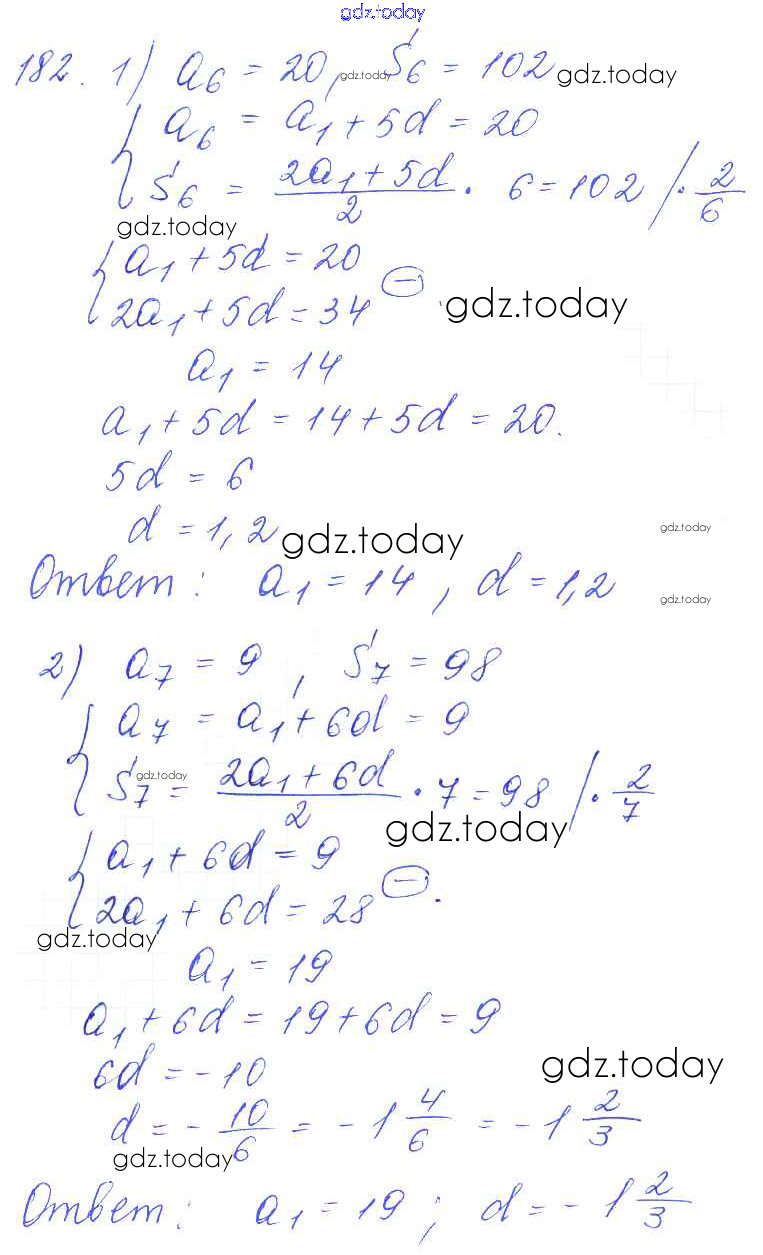 gdz.today
182. 1) a₆ = 20, gdz.today S₆ = 102 gdz.today
{ a₆ = a₁ + 5d = 20
{ S₆ = (2a₁ + 5d)/2 · 6 = 102 / · 2/6
gdz.today
{ a₁ + 5d = 20
{ 2a₁ + 5d = 34 ⊖ gdz.today
a₁ = 14
a₁ + 5d = 14 + 5d = 20.
5d = 6
d = 1,2 gdz.today gdz.today
Ответ: a₁ = 14, d = 1,2 gdz.today
2) a₇ = 9, S₇ = 98
{ a₇ = a₁ + 6d = 9
{ S₇ gdz.today = (2a₁ + 6d)/2 · 7 = 98 / · 2/7
gdz.today
{ a₁ + 6d = 9
{ 2a₁ + 6d = 28 ⊖.
gdz.today
a₁ = 19
a₁ + 6d = 19 + 6d = 9
6d = -10 gdz.today
d = - 10/6 = -1 4/6 = -1 2/3
gdz.today
Ответ: a₁ = 19; d = -1 2/3